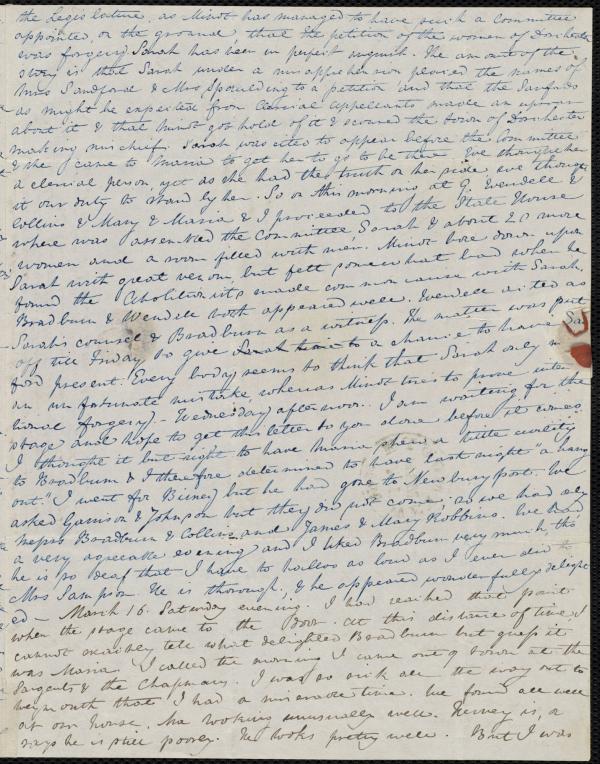 the Legislature, as Minot has managed to have such a Committee
appointed, on the ground, that the petition of the women of Dorchester
was forgery. Sarah has been in perfect anguish. The amount of the
story is that Sarah under a misapprehension placed the names of
Mrs Sandford & Mrs Spaulding to a petition and that the Sanfords
as might be expected from Clerical appellants made an uproar
about it & that Minot got hold of it & scoured the town of Dorchester
making mischief. Sarah was cited to appear before the Committee
& she came to Maria to get her to go to be there. We thought her
a clerical person, yet as she had the truth on her side, we thought
it our duty to stand by her. So on this morning at 9. Wendell &
Collins & Mary & Maria & I proceeded to the State House
where was assembled the Committee Sarah & about 20 more
women and a room filled with men. Minot bore down upon
Sarah with great venom, but felt somewhat bad when he
found the Abolitionists made common cause with Sarah.
Bradburn & Wendell both appeared well. Wendell acted as
Sarah's counsel & Bradburn as a witness. The matter was put
off till Friday to give Sarah time to a chance to have
ford present. Every body seems to think that Sarah only
an unfortunate mistake, whereas Minot tries to prove inten
tional forgery. - Wednesday afternoon. I am waiting for the
stage and hope to get this letter to you alone before it comes.
I thought it but right to have Maria shew a little civility
to Bradburn & I therefore determined to have last night "a hang
out." I went for Birney but he had gone to Newburyport. We
asked Garrison & Johnson but they did not come; so we had only
Messrs Bradburn & Collins and James & Mary Robbins. We had
a very agreeable evening and I liked Bradburn very much tho
he is so deaf that I have to holloo as loud as I ever did
Mrs Sampson. He is thorough, & he appeared wonderfully delight
ed - March 16. Saturday evening. I had reached that point
when the stage came to the Door. At this distance of time, I
cannot exactly tell what delighted Bradburn but guess it
was Maria. I called the morning I came out of town at the
Sargents & the Chapmans. I was so sick all the way out to
Weymouth that I had a miserable time. We found all well
at our house. Ma looking unusually well. Hervey is, a
says he is still poorly. He looks pretty well. But I was